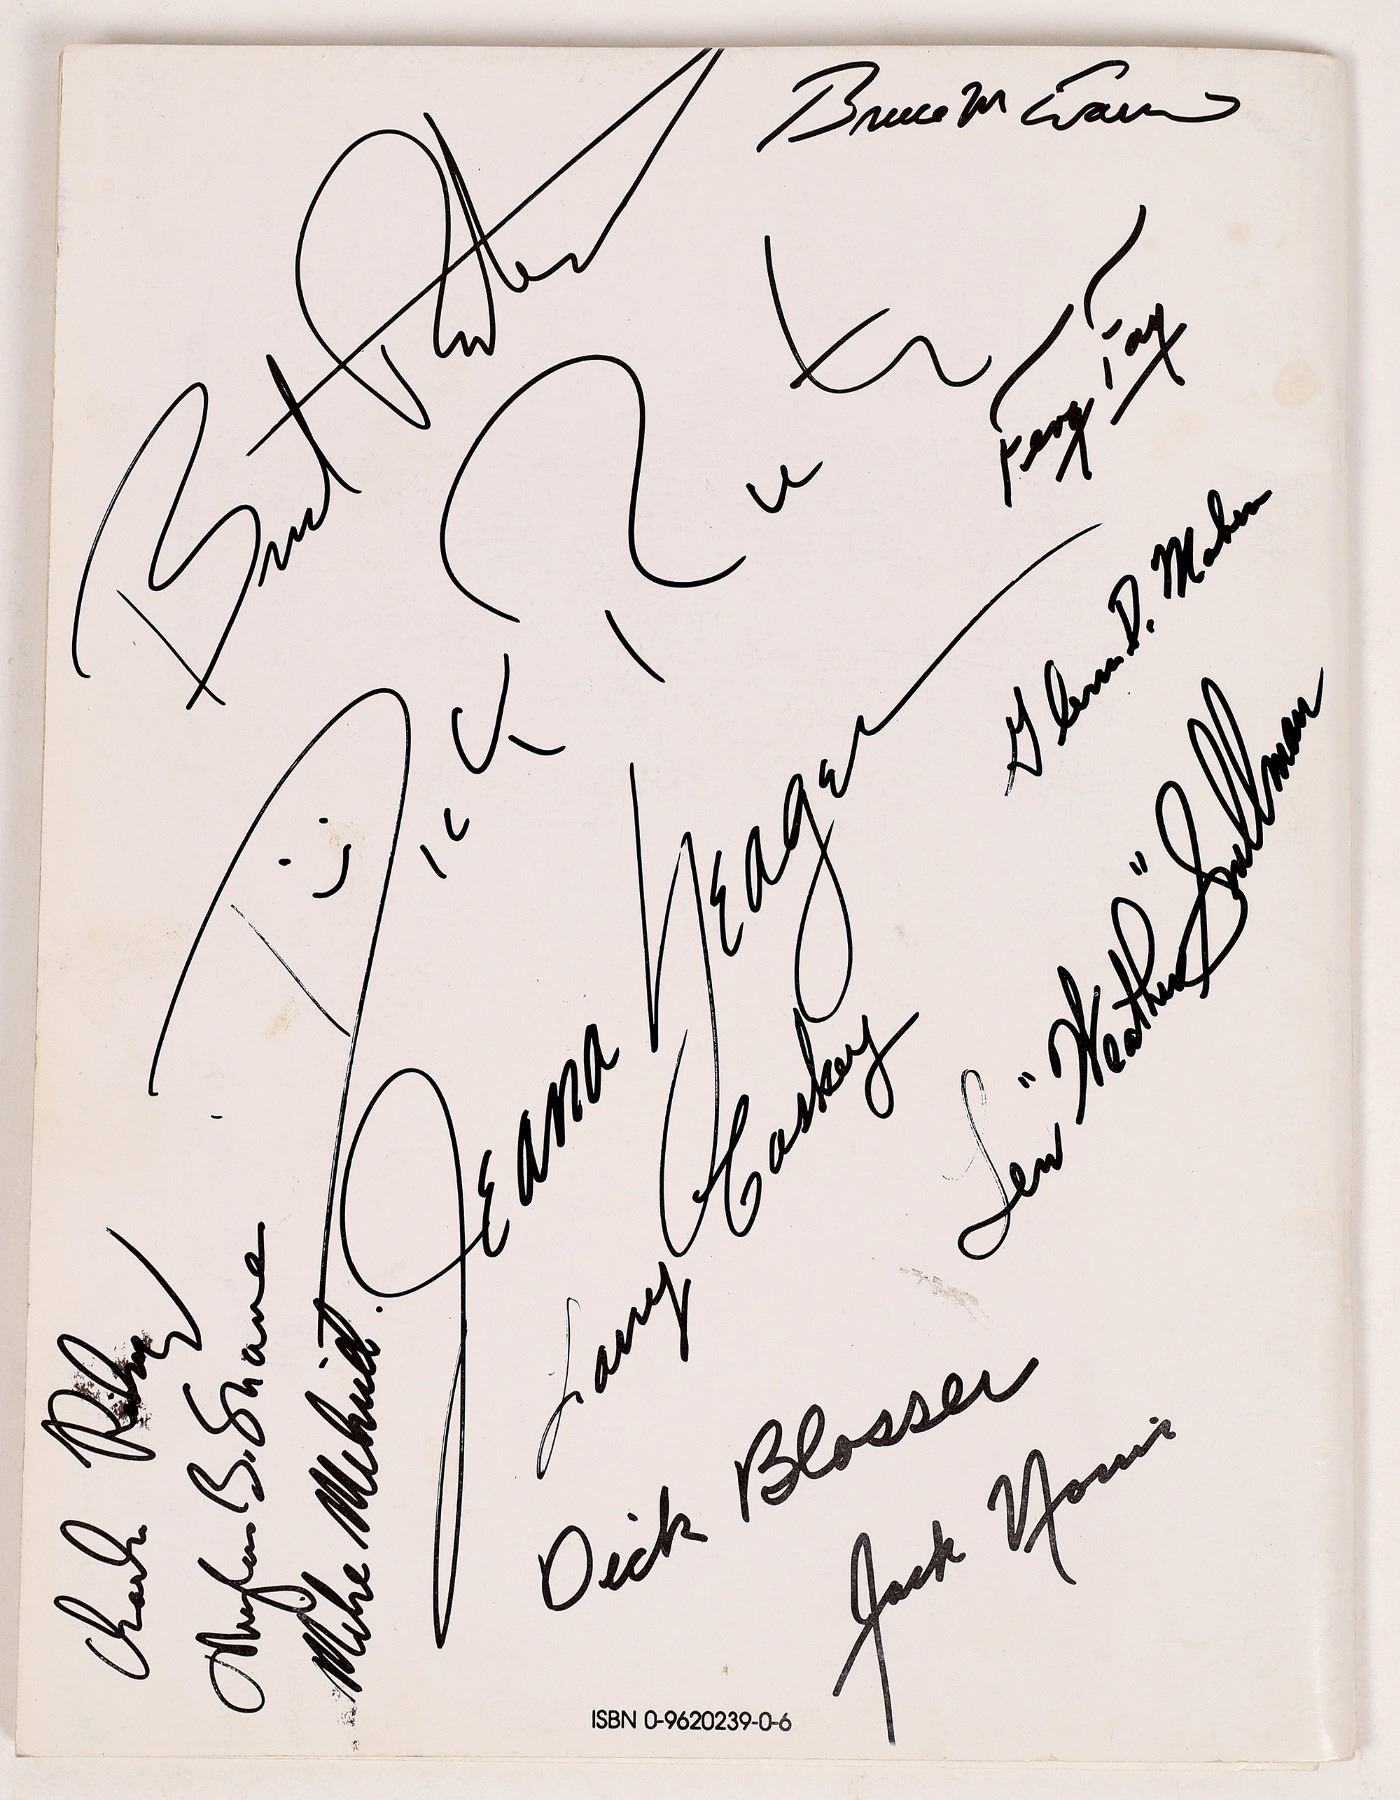 Bruce M Evans
Burt Rutan
Dick Rutan
Fergy Fay
Glenn D. Maben
Jeana Yeager
Len "Weather" Snellman
Larry Caskey
Charlie Richey
B. Shane
Mike Melvill
Dick Blosser
Jack Norris
ISBN 0-9620239-0-6